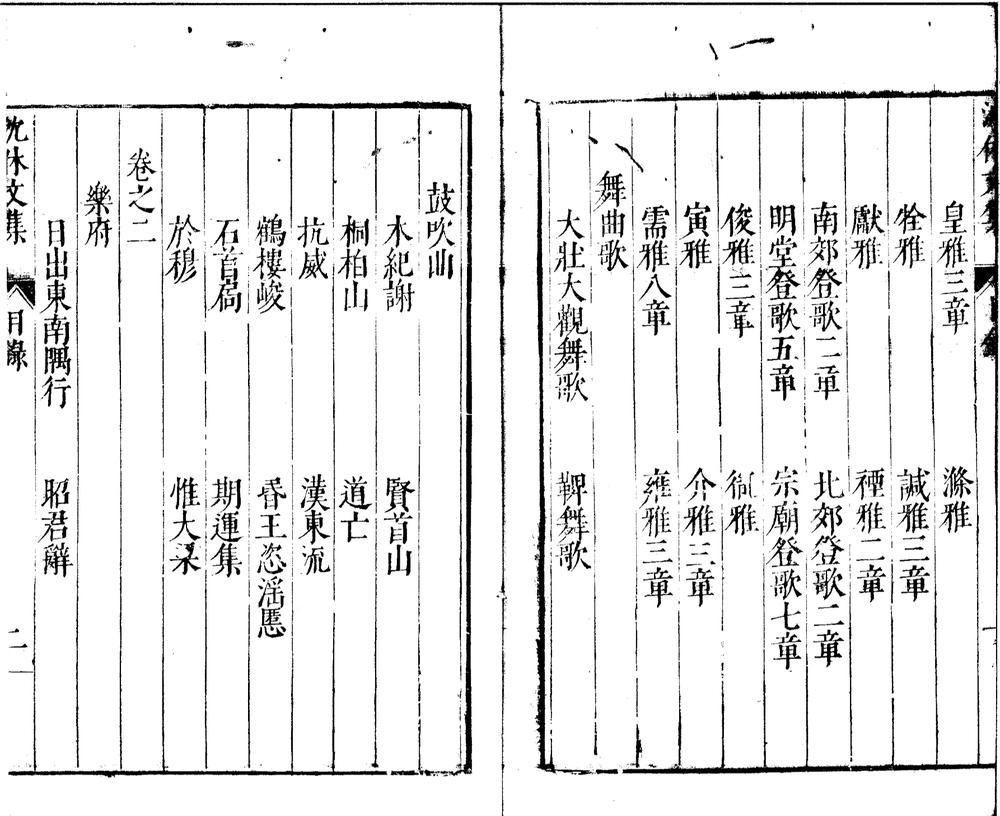 皇雅三章 滌雅
牷雅 諴雅三章
獻雅 禋雅二章
南郊登歌二章 北郊登歌二章
明堂登歌五章 宗廟登歌七章
俊雅三章
寅雅 介雅三章
需雅八章 雍雅三章
舞曲歌
大壯大觀舞歌 鞞舞歌
鼓吹曲
木紀謝 賢首山
桐柏山 道亡
抗威 漢東流
鶴樓峻 昏主恣淫慝
石首局 期運集
於穆 惟大梁
卷之二
樂府
日出東南隅行 昭君辭
沈休文集 目錄 二